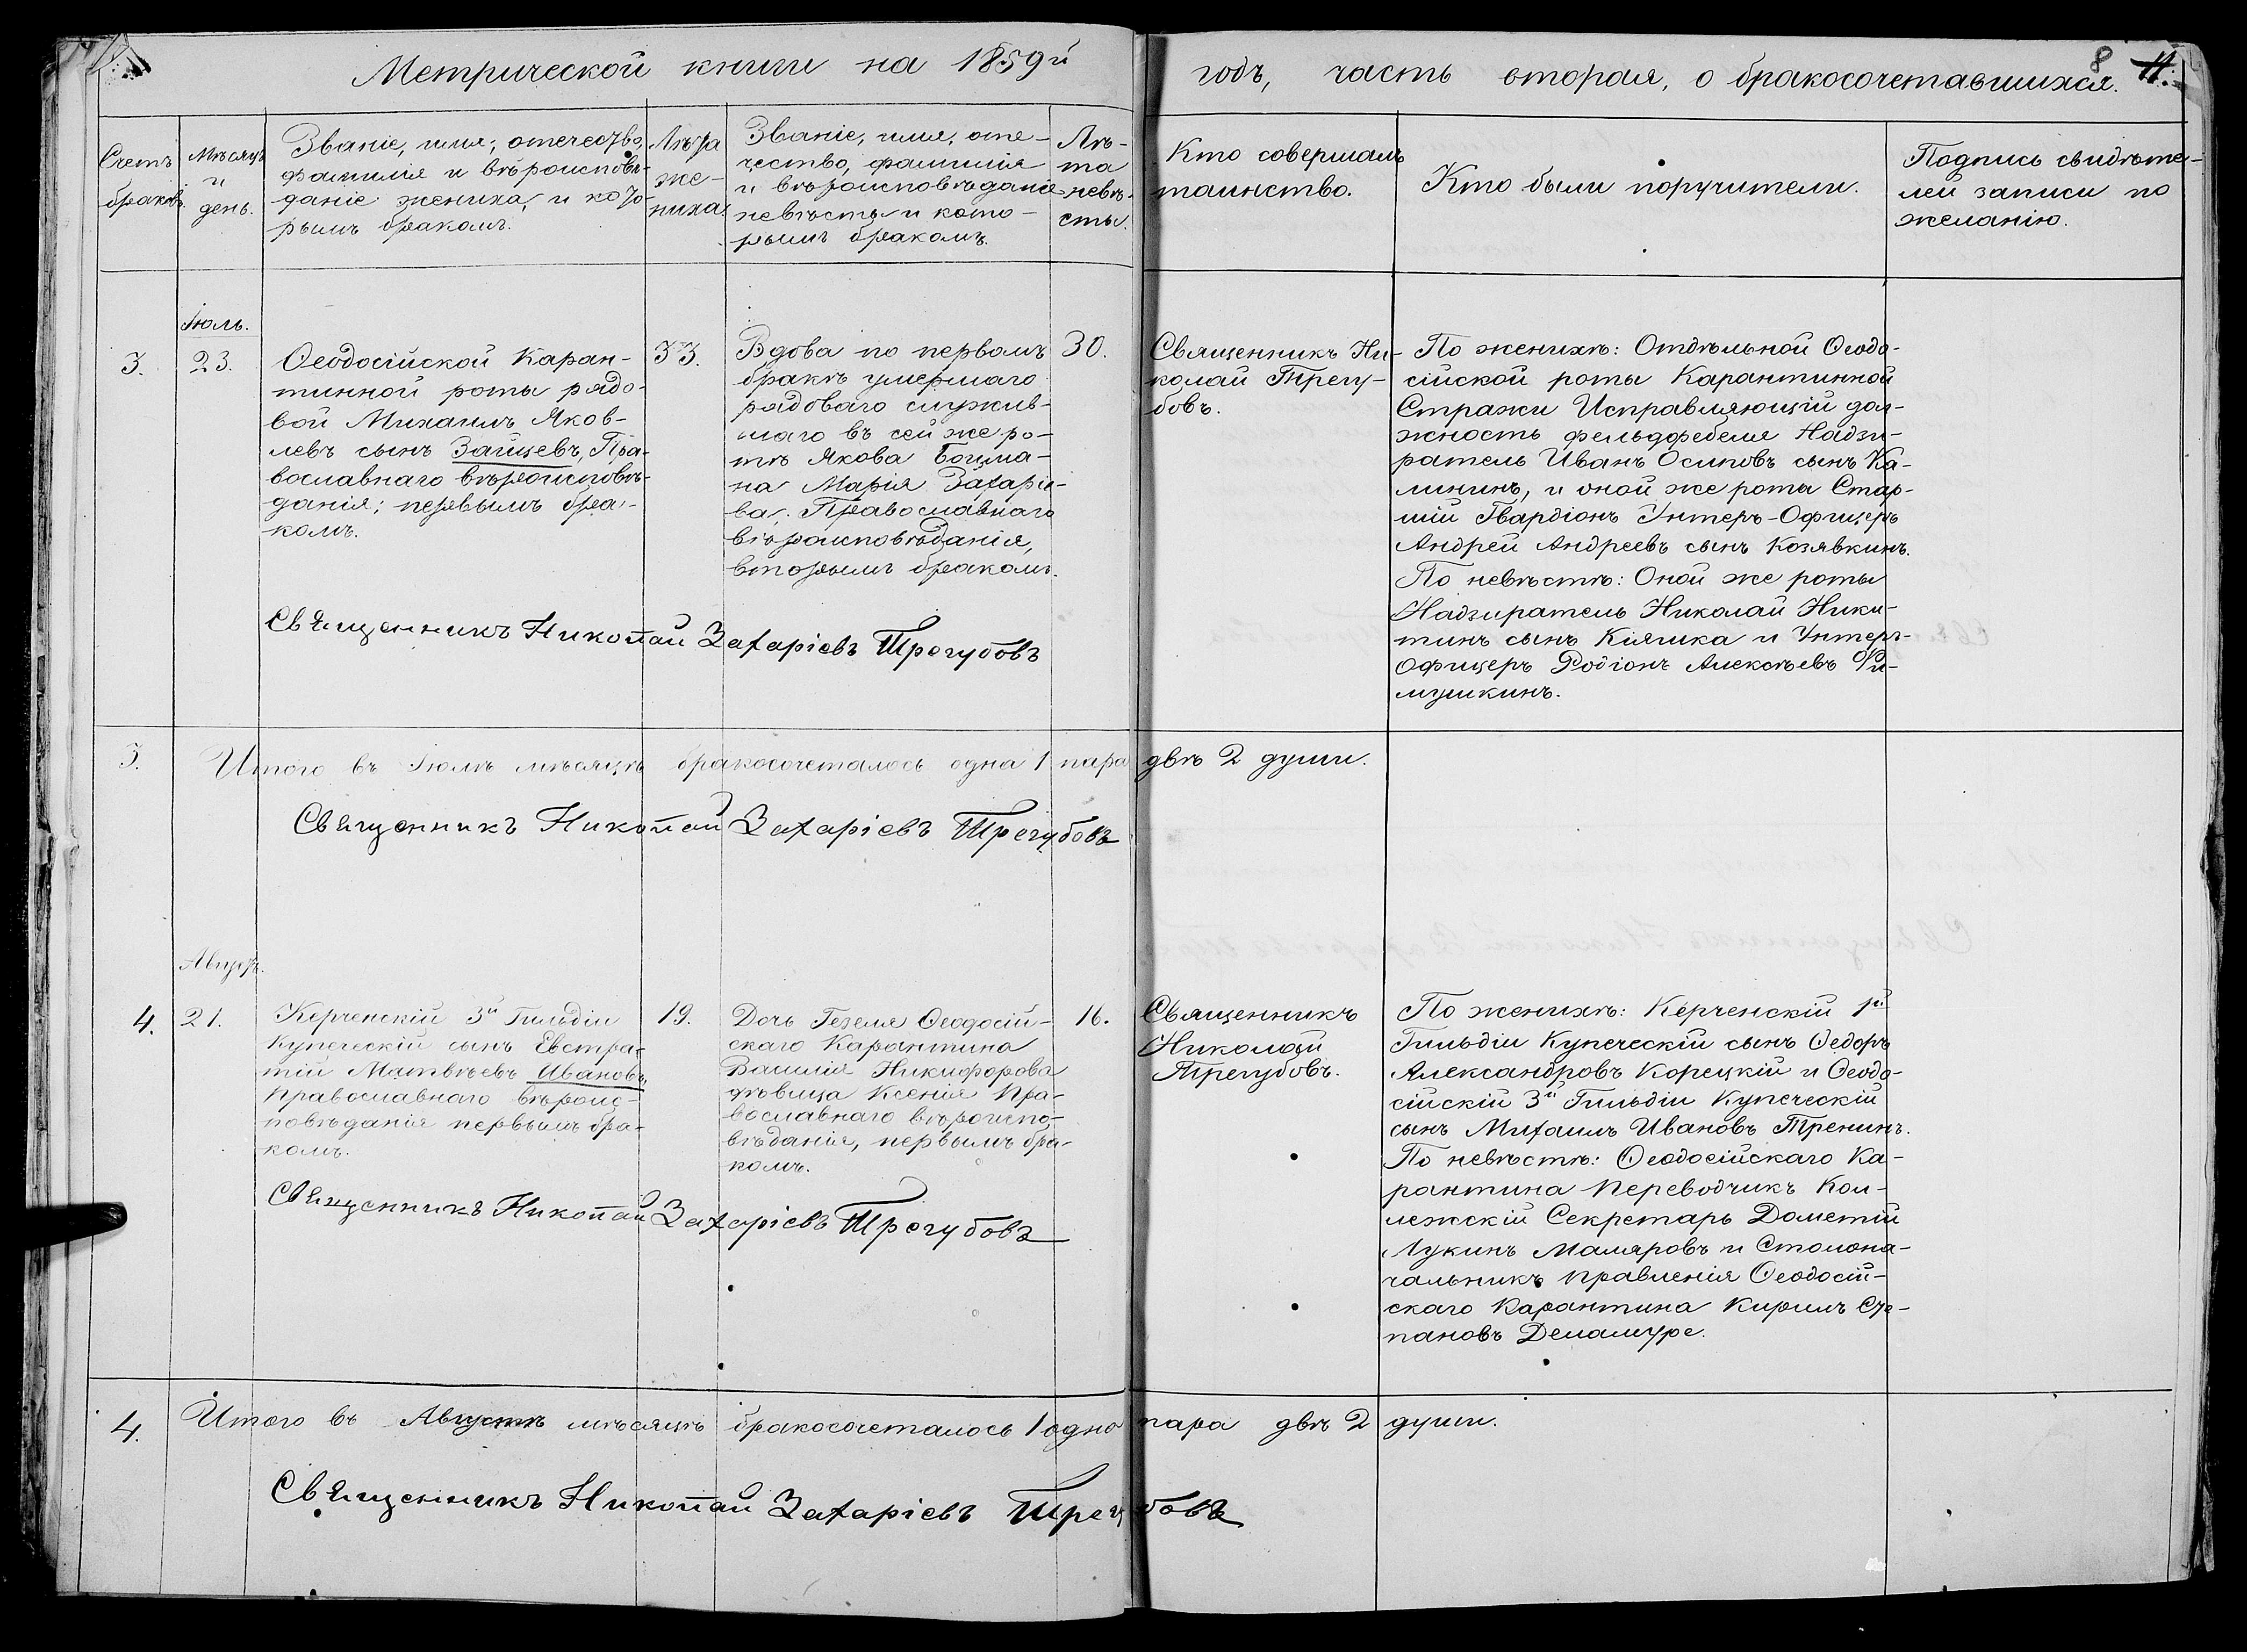 Метрической книги на 1859й годъ, часть вторая, о бракосочетавшихся.
8
Счетъ
браковъ.
Мѣсяцъ
и
день.
Званіе, имя, отечество,
фамилія и вѣроисповѣ-
даніе жениха, и кото-
рымъ бракомъ.
Лѣта
же-
ниха.
Званіе, имя, оте-
чество, фамилія
и вѣроисповѣданіе
невѣсты и кото-
рымъ бракомъ.
Лѣ-
та
невѣ-
сты.
Кто совершалъ
таинство.
Кто были поручители.
Подпись свидѣте-
лей записи по
желанію.
Іюль.
3.
23.
Ѳеодосійской Каран-
тинной роты рядо-
вой Михаилъ Яков-
левъ сынъ Зайцевъ, Пра-
вославнаго вѣроисповѣ-
данія; первымъ бра-
комъ.
33.
Вдова по первомъ
бракѣ умершаго
рядоваго служив-
шаго въ сей же ро-
тѣ Якова Боцма-
на Марія Захаріе-
ва, Православнаго
вѣроисповѣданія,
вторымъ бракомъ.
30.
Священникъ Ни-
колай Трегу-
бовъ.
По женихѣ: Отдѣльной Ѳеодо-
сійской роты Карантинной
Стражи Исправляющій дол-
жность фельдфебеля Надзи-
ратель Иванъ Осиповъ сынъ Ка-
лининъ, и оной же роты Стар-
шій Гвардіонъ Унтеръ-Офицеръ
Андрей Андреевъ сынъ Козявкинъ.
По невѣстѣ: Оной же роты
Надзиратель Николай Ники-
тинъ сынъ Кіяшка и Унтеръ-
Офицеръ Родіонъ Алексѣевъ Фи-
мушкинъ.
Священникъ Николай Захаріевъ Трегубовъ
3.
Итого въ Іюлѣ мѣсяцѣ бракосочеталось одна 1 пара двѣ 2 души.
Священникъ Николай Захаріевъ Трегубовъ
Августъ.
4.
21.
Керченскій 3й Гильдіи
Купеческій сынъ Евстра-
тій Матвѣевъ Ивановъ,
Православнаго вѣроис-
повѣданія первымъ бра-
комъ.
19.
Дочь Гезеля Ѳеодосій-
скаго Карантина
Василія Никифорова
дѣвица Ксенія Пра-
вославнаго вѣроиспо-
вѣданія, первымъ бра-
комъ.
16.
Священникъ
Николай
Трегубовъ.
По женихѣ: Керченскій 1й
Гильдіи Купеческій сынъ Ѳедоръ
Александровъ Корецкій и Ѳеодо-
сійскій 3й Гильдіи Купеческій
сынъ Михаилъ Ивановъ Тренинъ.
По невѣстѣ: Ѳеодосійскаго Ка-
рантина Переводчикъ Кол-
лежскій Секретарь Дометій
Лукинъ Маляровъ и Столона-
чальникъ Правленія Ѳеодосій-
скаго Карантина Кирилъ Сте-
пановъ Деламуре.
Священникъ Николай Захаріевъ Трегубовъ
4.
Итого въ Августѣ мѣсяцѣ бракосочеталось 1 одна пара двѣ 2 души.
Священникъ Николай Захаріевъ Трегубовъ